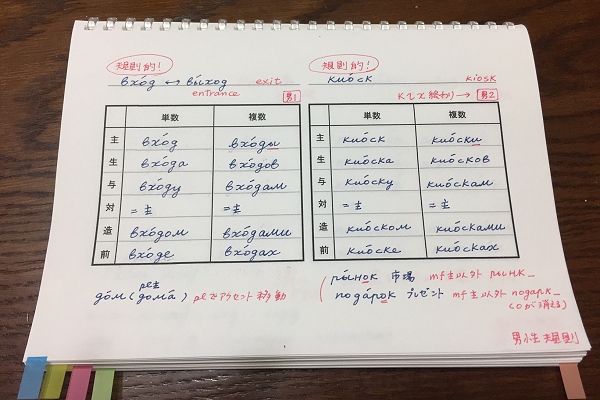 規則的!
вхо́д ↔ вы́ход exit
entrance
男1
単数 複数
主 вхо́д вхо́ды
生 вхо́да вхо́дов
与 вхо́ду вхо́дам
対 =主 =主
造 вхо́дом вхо́дами
前 вхо́де вхо́дах
pl主
до́м (дома́) plでアクセント移動
規則的!
кио́ск kiosk
кで終わり→ 男2
単数 複数
主 кио́ск кио́ски
生 кио́ска кио́сков
与 кио́ску кио́скам
対 =主 =主
造 кио́ском кио́сками
前 кио́ске кио́сках
ры́нок 市場 mf主以外 рынк_
пода́рок プレゼント mf主以外 подарк_
(оが消える)